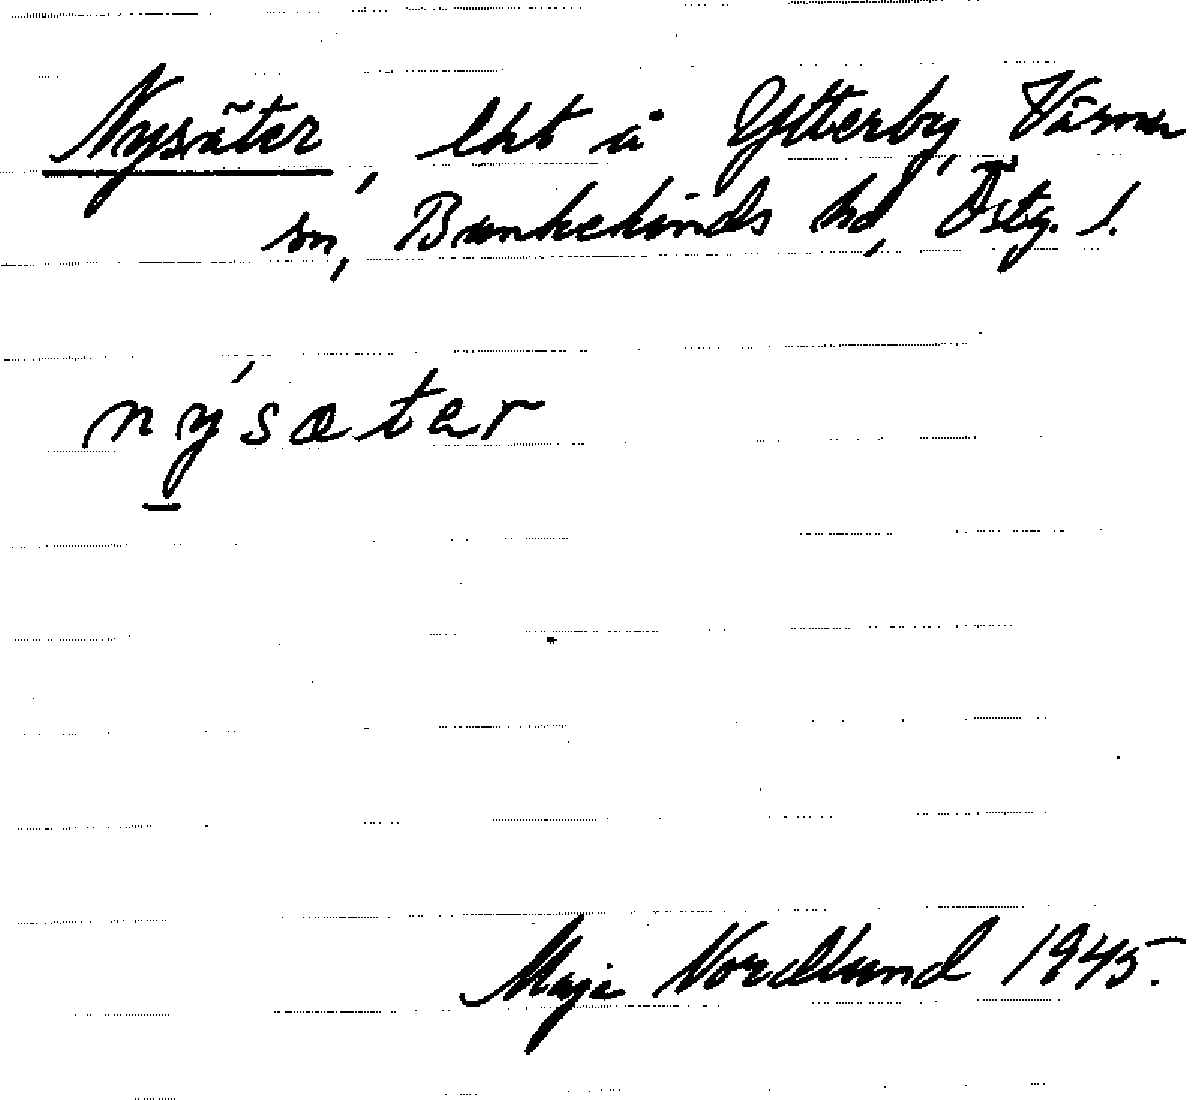 Nysäter, lht å Ytterby, Vårnu
sn, Bankekinds hd, Östg. l.
ny´sæter
Maja Nordlund 1945.